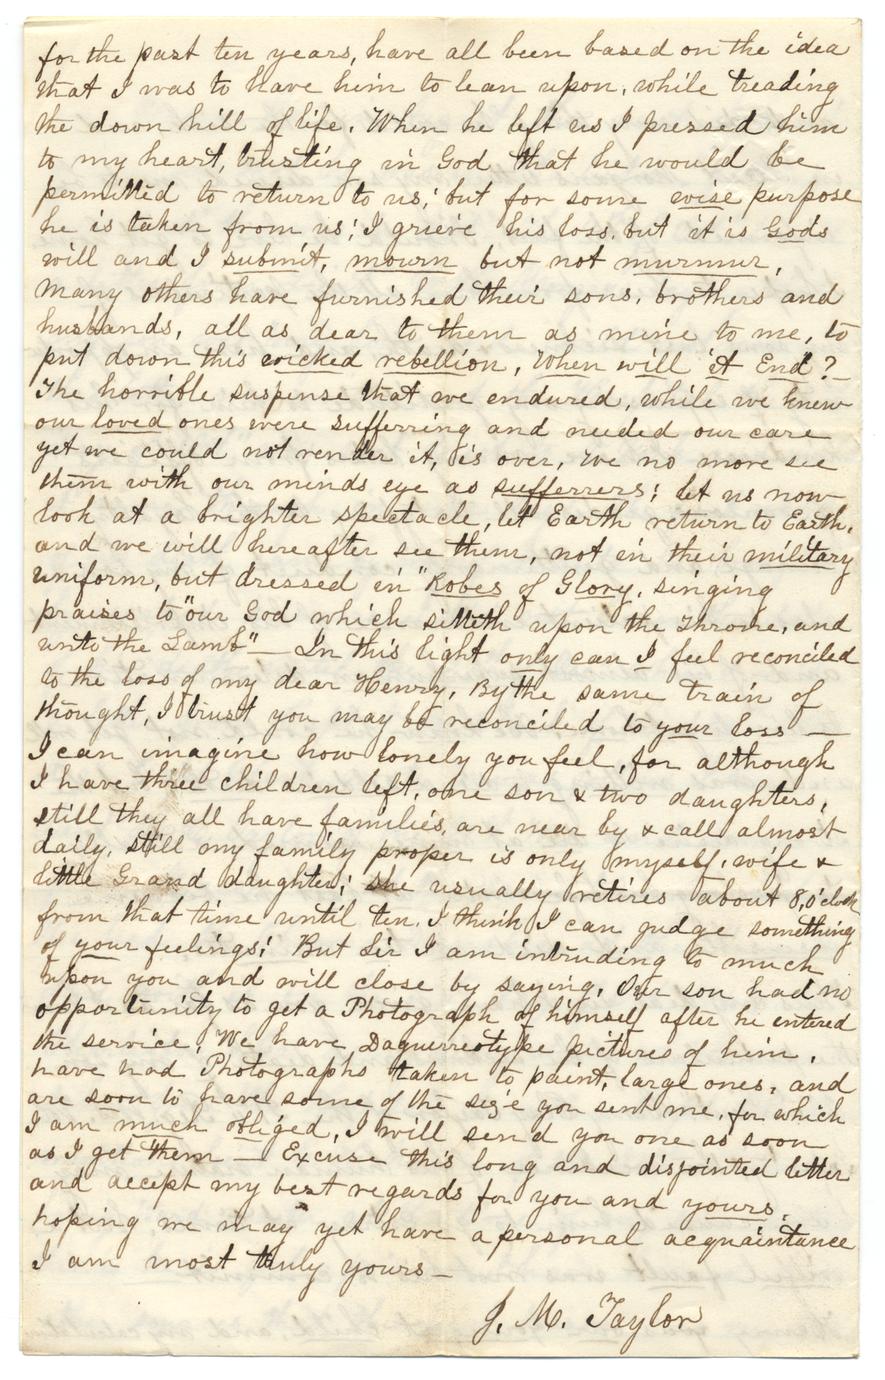 for the past ten years, have all been based on the idea
that I was to have him to lean upon, while treading
the down hill of life. When he left us I pressed him
to my heart, trusting in God that he would be
permitted to return to us; but for some wise purpose
he is taken from us; I grieve his loss, but it is Gods
will and I submit, mourn but not murmur,
Many others have furnished their sons, brothers and
husbands, all as dear to them as mine to me, to
put down this wicked rebellion, When will it End?
The horrible suspense that we endured, while we knew
our loved ones were sufferring and needed our care
yet we could not render it, is over, We no more see
them with our minds eye as sufferrers; let us now
look at a brighter spectacle, let Earth return to Earth,
and we will hereafter see them, not in their military
uniform, but dressed in "Robes of Glory, singing
praises to "our God which sitteth upon the Throne, and
unto the Lamb" — In this light only can I feel reconciled
to the loss of my dear Henry, By the same train of
thought, I trust you may be reconciled to your loss —
I can imagine how lonely you feel, for although
I have three children left, one son & two daughters,
still they all have families, are near by & call almost
daily, still my family proper is only myself, wife &
little Grand daughter; she usually retires about 8, O'clock
from that time until ten, I think I can judge something
of your feelings; But Sir I am intruding to much
upon you and will close by saying, Our son had no
opportunity to get a Photograph of himself after he entered
the service, We have Daguerreotype pictures of him,
have had Photographs taken to paint, large ones, and
are soon to have some of the size you sent me, for which
I am much obliged, I will send you one as soon
as I get them — Excuse this long and disjointed letter
and accept my best regards for you and yours,
hoping we may yet have a personal acquaintance
I am most truly yours —
J. M. Taylor